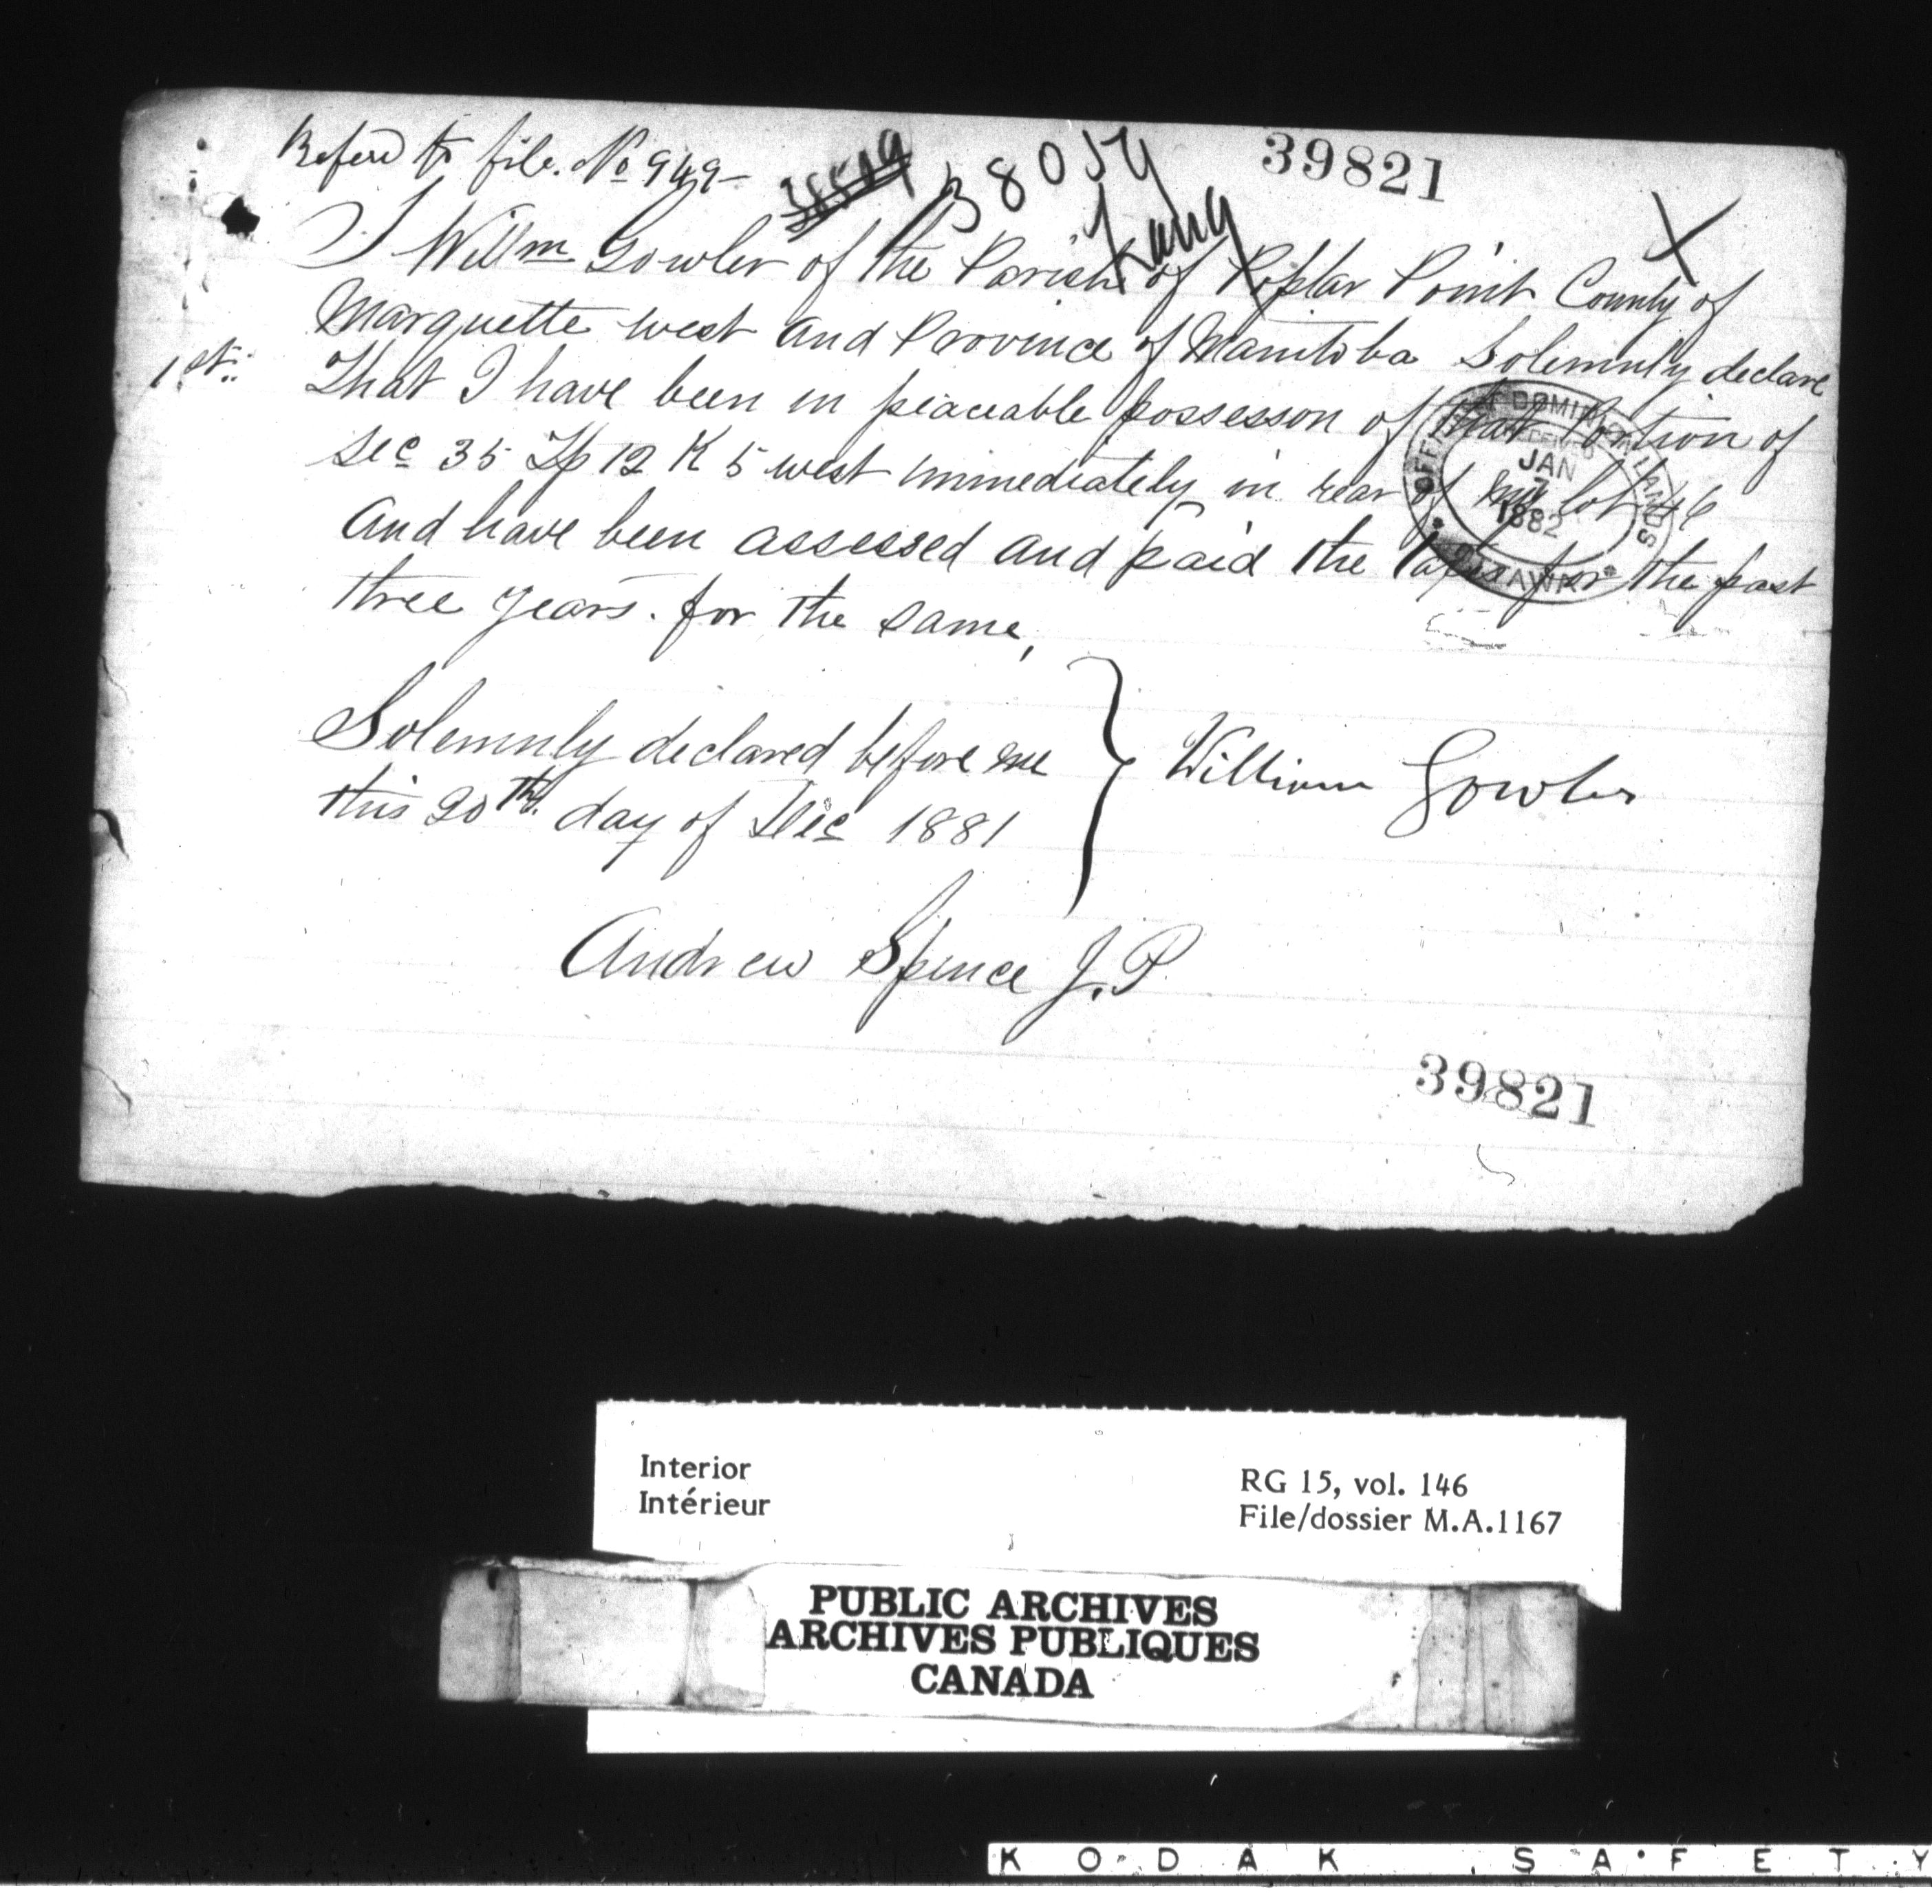 Referd to file. No 949-
38519
38054
39821
Lang
X
I Willm Gowler of the Parish of Poplar Point County of
Marquette west and Province of Manitoba Solemnly declare
1st. That I have been in peaceable possesson of that Portion of
Sec 35 Tp 12 R 5 west immediately in rear of my lot 46
And have been assessed and paid the taxes for the past
three years. for the same,
OFFICE OF DOMINION LANDS
RECEIVED
JAN
7
1882
OTTAWA
Solemnly declared before me
this 20th. day of Dec 1881
William Gowler
Andrew Spence J.P.
39821
Interior
Intérieur
RG 15, vol. 146
File/dossier M.A.1167
PUBLIC ARCHIVES
ARCHIVES PUBLIQUES
CANADA
KODAK SAFETY